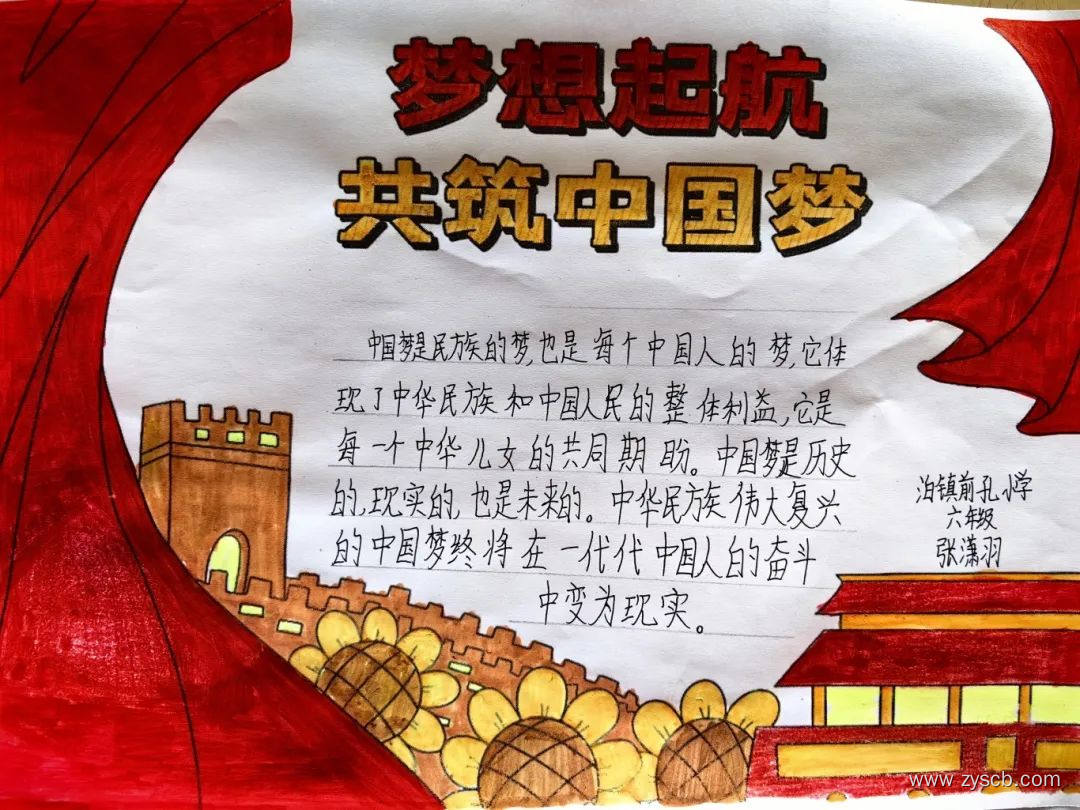 梦想起航
共筑中国梦
中国梦是民族的梦,也是每个中国人的梦,它体
现了中华民族和中国人民的整体利益,它是
每一个中华儿女的共同期盼。中国梦是历史
的,现实的,也是未来的。中华民族伟大复兴
的中国梦终将在一代代中国人的奋斗
中变为现实。
泊镇前孔小学
六年级
张潇羽
www.zyscb.com